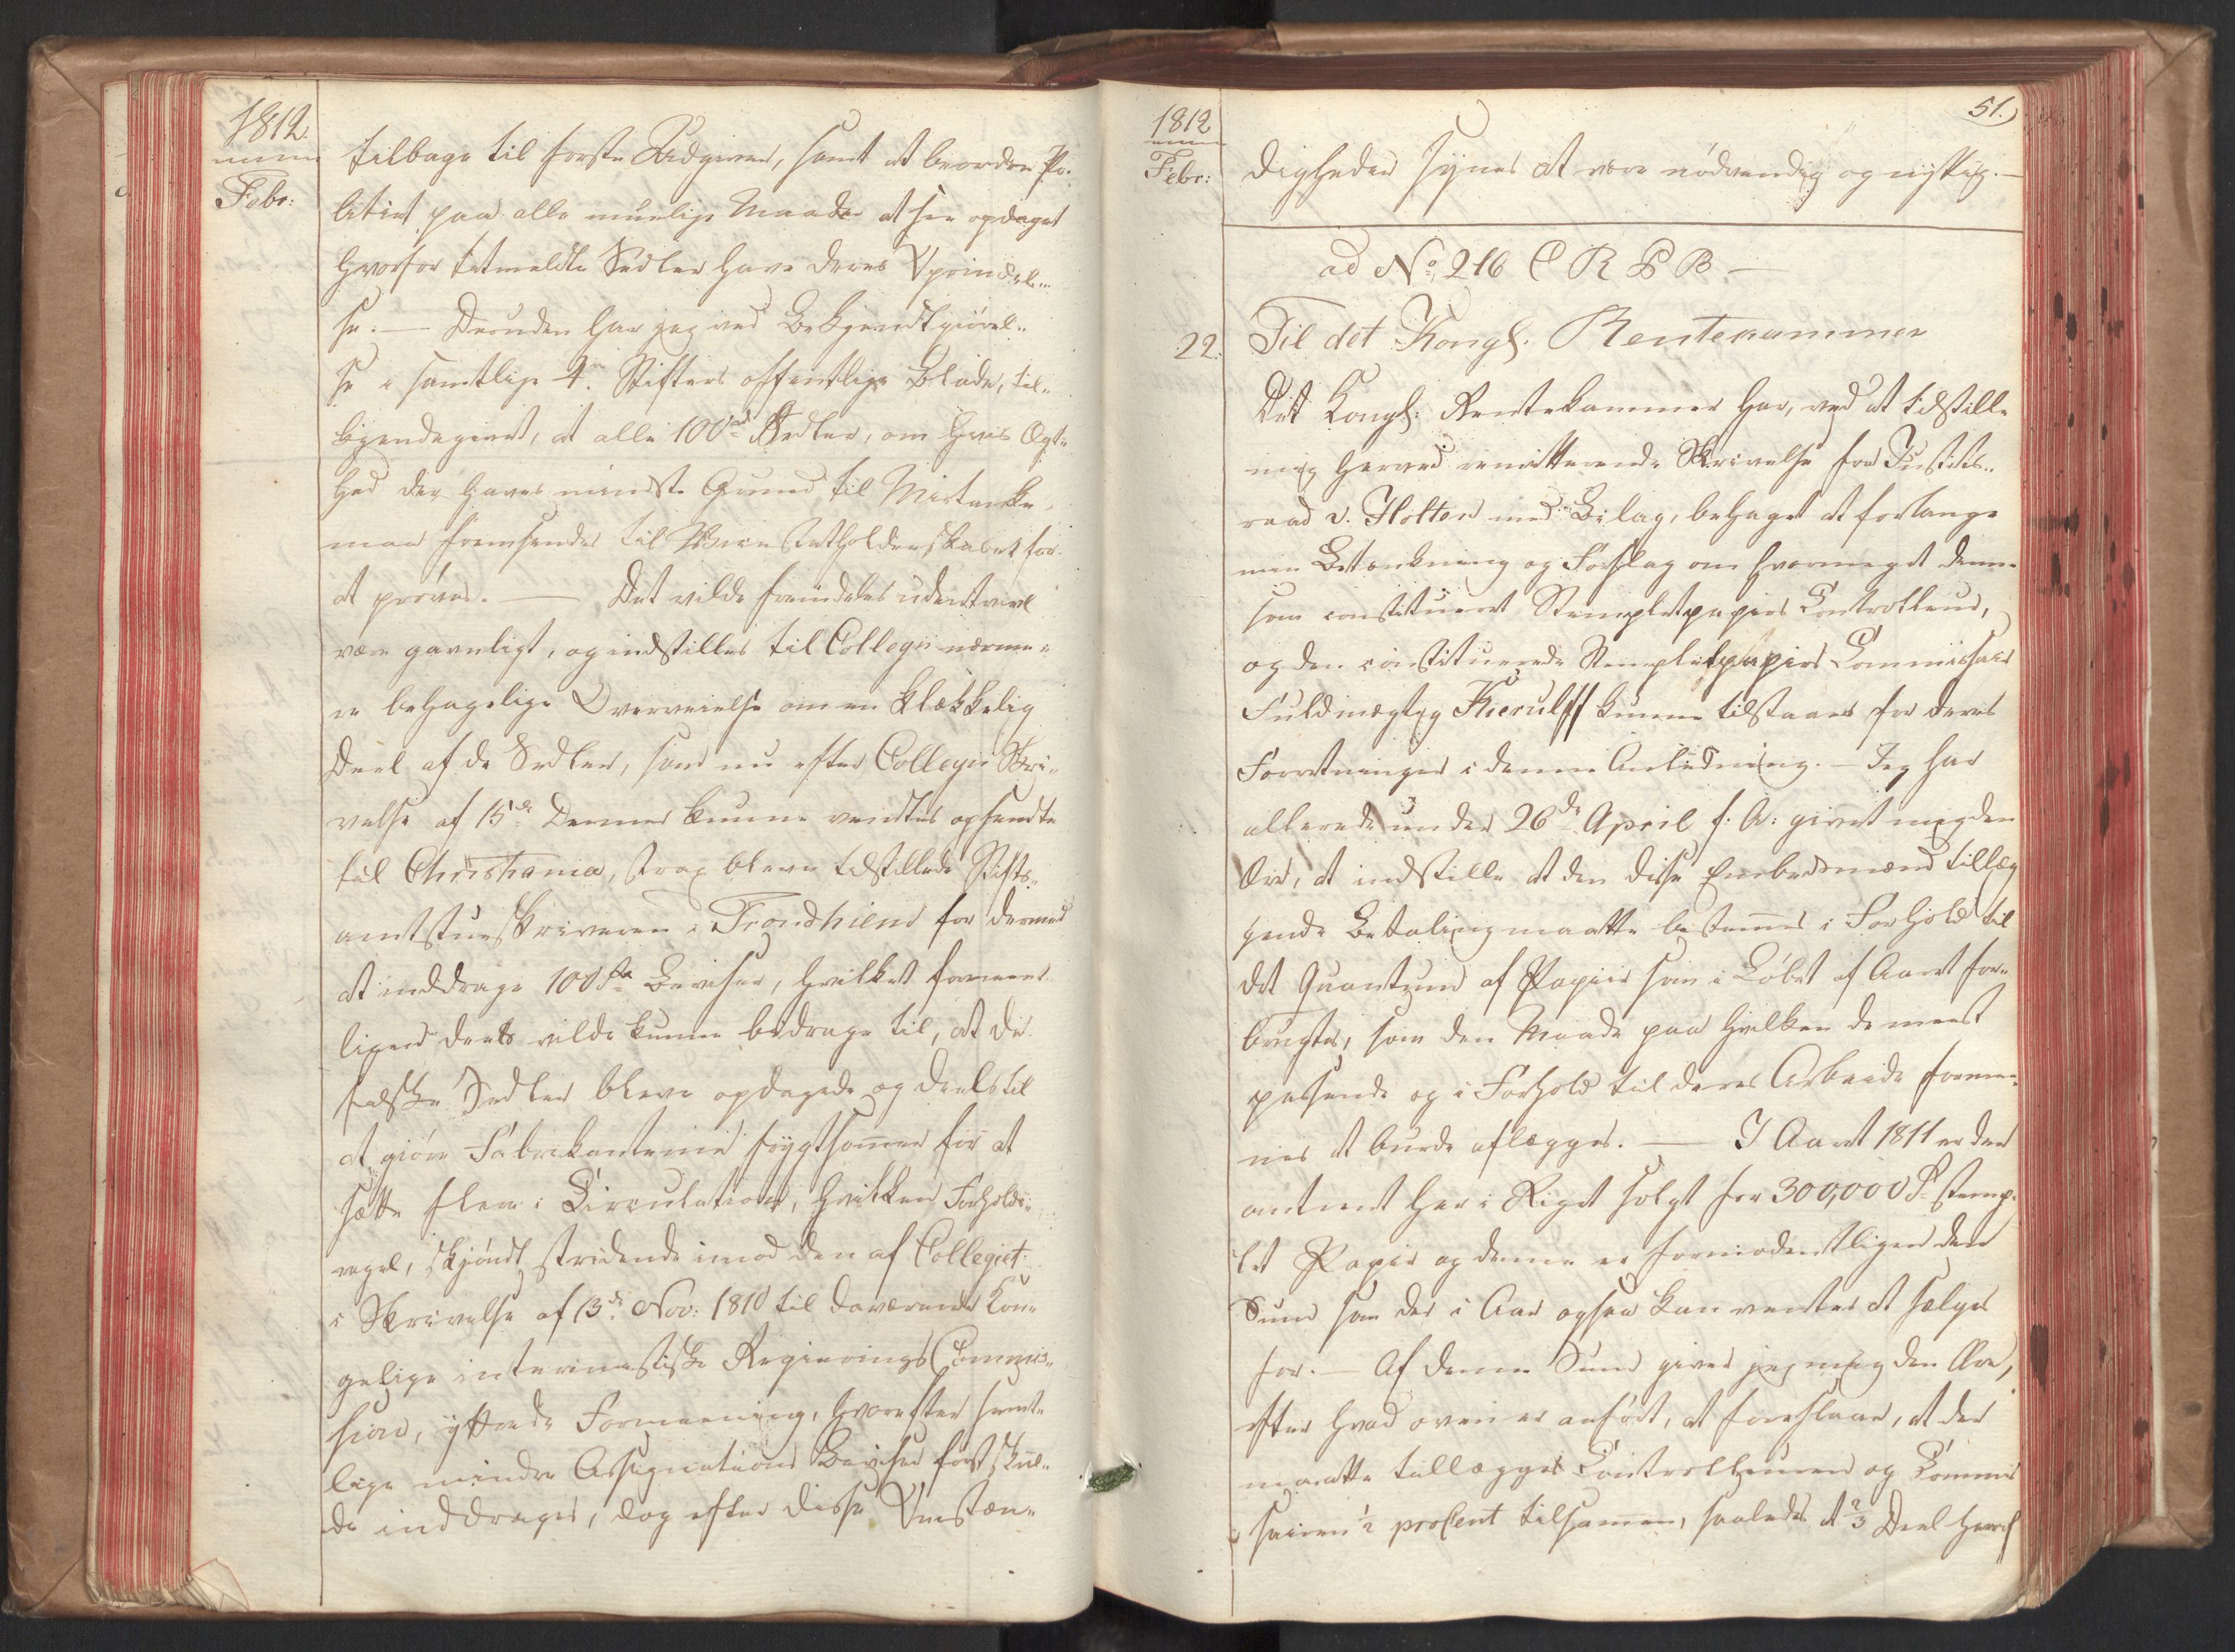 1812
Febr:
tilbage til første Udgiver, samt at beordre Po-
litiet paa alle muelige Maader at see opdaget
hvorfra titmeldte Sedler have deres Oprindel-
se. — Desuden har jeg ved Bekjendtgiørel-
se i samtlige 4re Stifters offentlige Blade, til-
kjendegivet, at alle 100rd Sedler, om hvis Ægt-
hed der haves mindste Grund til Mistanke,
maa fremsendes til Vice Statholderskabet for
at prøves. — Det vilde fremdeles udentvivl
være gavnligt, og indstilles til Collegii nærme-
re behagelige Overveielse om en klækkelig
Deel af de Sedler, som nu efter Collegii Skri-
velse af 15de Dennes kunne ventes opsendte
til Christiania, strax bleve tilstillede Stifts-
amtstueskriveren i Trondhiem for dermed
at inddrage 100rd Beviser, hvilket formeent-
ligen deels vilde kunne bidrage til, at de
falske Sedler bleve opdagede og deels til
at giøre Fabrikanterne frygtsommer for at
sætte flere i Circulation, hvilken Forholds-
regel, skjøndt stridende imod den af Collegiet
i Skrivelse af 13de Nov: 1810 til daværende Kon-
gelige interimistiske Regierings Commis-
sion, yttrede Formeening, hvorefter samt-
lige mindre Assignations Beviser først skul-
de inddrages, dog efter disse Omstæn-
51.
1812
Febr:
digheder synes at være nødvendig og nyttig. —
ad No 216 C R P B —
22. Til det Kongl. Rentekammer
Det Kongl: Rentekammer har, ved at tilstille
mig herved remitterende Skrivelse fra Justits-
raad v. Holten med Bilag, behaget at forlange
min Betænkning og Forslag om hvormeget denne
som constitueret Stempletpapirs Controlleur,
og den constituerede Stempletpapirs Commissair
Fuldmægtig Kierulff kunne tilstaaes for deres
Forretninger i denne Anledning. — Jeg har
allerede under 26de April f. A: givet mig den
Ære, at indstille at den disse Embedsmænd tillæg
gende Betaling maatte bestemes i Forhold til
det Quantum af Papiir som i Løbet af Aaret for-
brugtes, som den Maade paa hvilken de meest
passende og i Forhold til deres Arbeide formee-
nes at burde aflægges. — I Aaret 1811 er der
omtrent her i Riget solgt for 300,000 rd stemp-
let Papir og denne er formodentligen den
Sum som der i Aar ogsaa kan ventes at sælges
for. — Af denne Sum giver jeg mig den Ære,
efter hvad oven er anført, at foreslaae, at der
maatte tillægges Controlleuren og Commis
sairen ½ procent tilsammen, saaledes at ⅔ Deel heraf